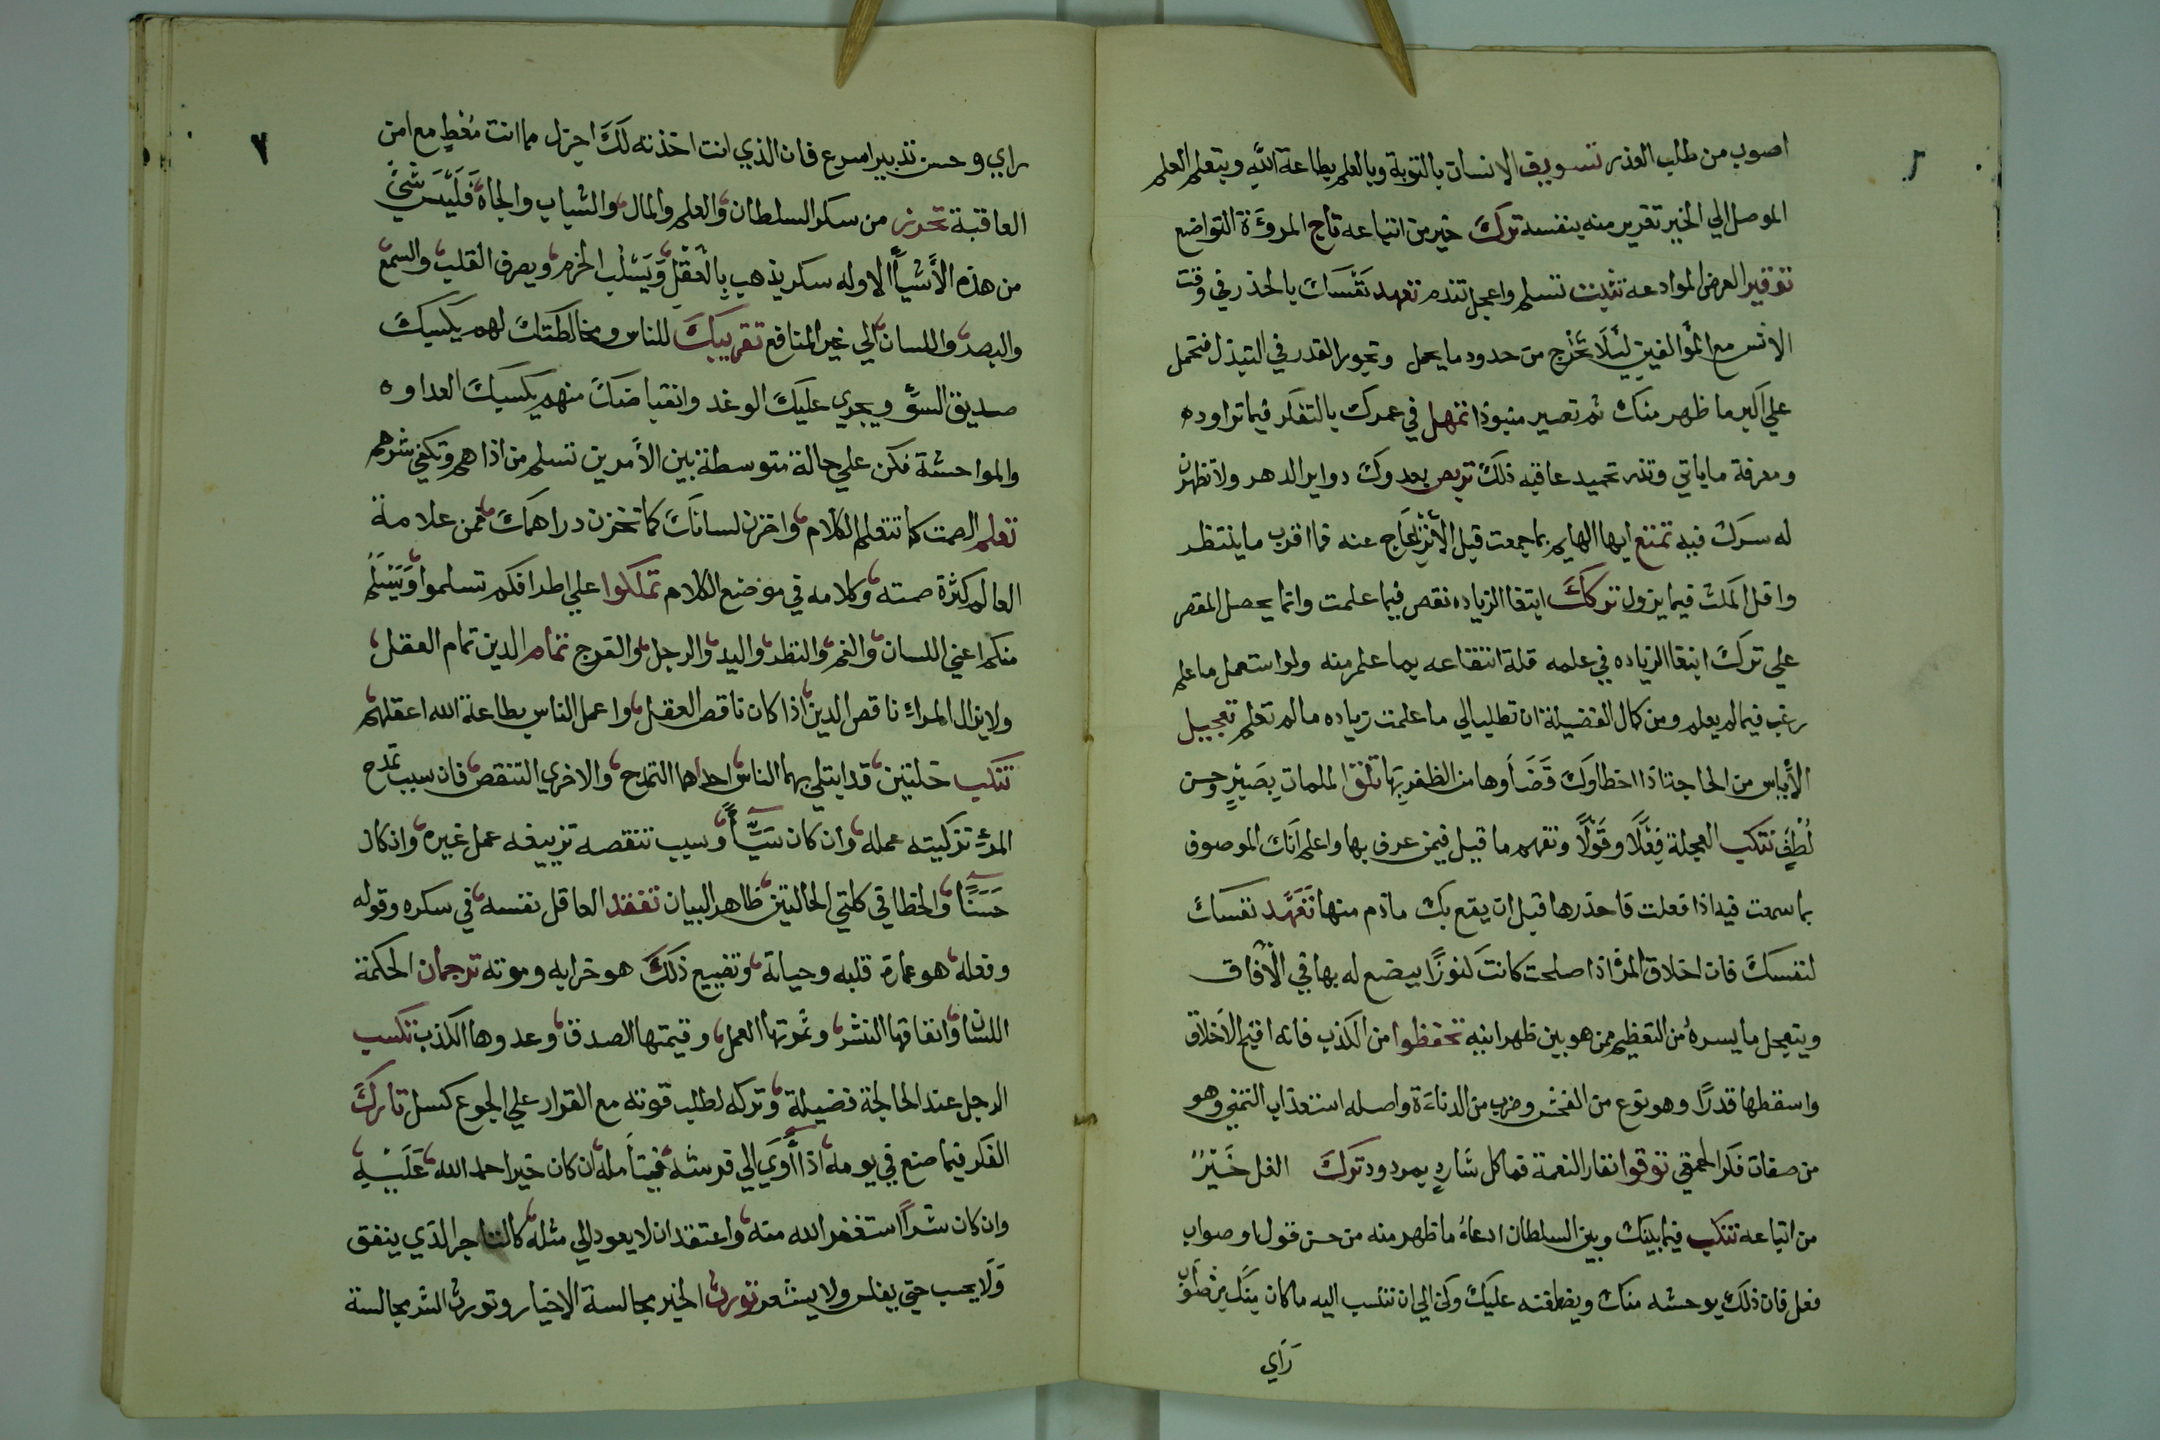 اصوب من طلب العذر تسويف الانسان بالتوبة وبالعلم بطاعة الله وبتعلم العلم
الموصل الي الخير تقرير منه بنفسه ترك خير من اتباعه تاج المروّة التواضع
توقير العرض الموادعه تثبت تسلم واعجل تندم تعهد نفسك بالحذر في وقت
الانس مع المؤالفين ليلا تخرج من حدود ما يحمل وتجوز القدر في التبذل فتحمل
علي اكبر ما ظهر منك ثم تصير منبوذا تمهل في عمرك بالتفكر فيما تراوده
ومعرفة ما ياتي وتذر تحميد عاقبه ذلك تربص بعدوك دواير الدهر ولا تظهرن
له سرك فيه تمتع ايها الهايم بما جمعت قبل الأنزعاج عنه فما اقرب ما ينتظر
واقل المكث فيما يزول تركك ابتغا الزياده نقص فيما علمت وانما يحصل المقصر
علي ترك ابتغا الزياده في علمه قلة انتفاعه بما علم منه ولو استعمل ما علم
رغب فيما لم يعلم ومن كمال الفضيلة ان تطلب الي ما علمت زياده ما لم تعلم تعجيل
الأياس من الحاجة اذا اخطاوك قضأوها من الظفر بها تلق الملمات بصبر وحسن
لطف تنكب العجلة فعلا وقولا وتفهم ما قيل فيمن عرف بها واعلم انك الموصوف
بما سمعت فيه اذا فعلت فاحذرها قبل ان يقع بك ما ذم منها تعهد نفسك
لنفسك فان اخلاق المرء اذا صلحت كانت لنوزًا بيضع له بها في الأفاق
ويتعجل ما يسره من التعظيم ممن هو بين ظهرانيه تحفظوا من الكذب فانه اقبح الأخلاق
واسقطها قدرًا وهو نوع من الفحش وضرب من الدناءة واصله استعذاب التمني وهو
من صفات فكر الحمقي توقوا نفار النعمة فما كل شارد بمردود ترك الغل خير
من اتباعه تنكب فيما بينك وبين السلطان ادعاء ما ظهر منه من حسن قول او صواب
فعل فان ذلك يوحشه منك ويضغنه عليك وكن الي ان تنسب اليه ما كان منك من صواب
رأي
٧
راي وحسن تدبير اسرع فان الذي انت اخذته لك اجزل مما انت معط مع امن
العاقبة تحرز من سكر السلطان والعلم والمال والشباب والجاه فليس شي
من هذه الأشيأ الا وله سكر يذهب بالعقل ويسلب الحزم ويصرف القلب والسمع
والبصر واللسان الي غير المنافع تقريبك للناس ومخالطتك لهم يكسبك
صديق السؤ ويجري عليك الوغد وانقباضك منهم يكسبك العداوه
والمواحشة فكن علي حالة متوسطة بين الأمرين تسلم من اذاهم وتكفي شرهم
تعلم الصمت كما تتعلم الكلام واخزن لسانك كما تخزن دراهمك فمن علامة
العالم كثرة صمته وكلامه في موضع الكلام تملكوا علي اطرافكم تسلموا ويسلم
منكم اعني اللسان والفم والنظر واليد والرجل والفرج تمام الدين تمام العقل
ولا يزال المراء ناقص الدين اذا كان ناقص العقل واعمل الناس بطاعة الله اعقلهم
تنكب خلتين قد ابتلي بهما الناس احداهما التمدح والاخري التنقص فان سبب تمدح
المرء تزكيته عمله وان كان سيأً وسبب تنقصه تزييفه عمل غيره وان كان
حسنًا والخطا في كلتي الحالتين ظاهر البيان تفقد العاقل نفسه في سكره وقوله
وفعله هو عمارة قلبه وحياته وتضييع ذلك هو خرابه وموته ترجمان الحكمة
اللسان وانفاقها النشر وثمرتها العمل وقيمتها الصدق وعدوها الكذب تكسب
الرجل عند الحاجة فضيلة وتركه لطلب قوته مع القرار علي الجوع كسل تارك
الفكر فيما صنع في يومه اذا أوي الي فرشه فيتأمله ان كان خيرا حمد الله عليه
وان كان شرا استغفر الله منه واعتقد ان لا يعود الي مثله كالتاجر الذي ينفق
ولا يحسب حتي يفلس ولا يشعر تورث الخير مجالسة الاخيار وتورث الشر مجالسة